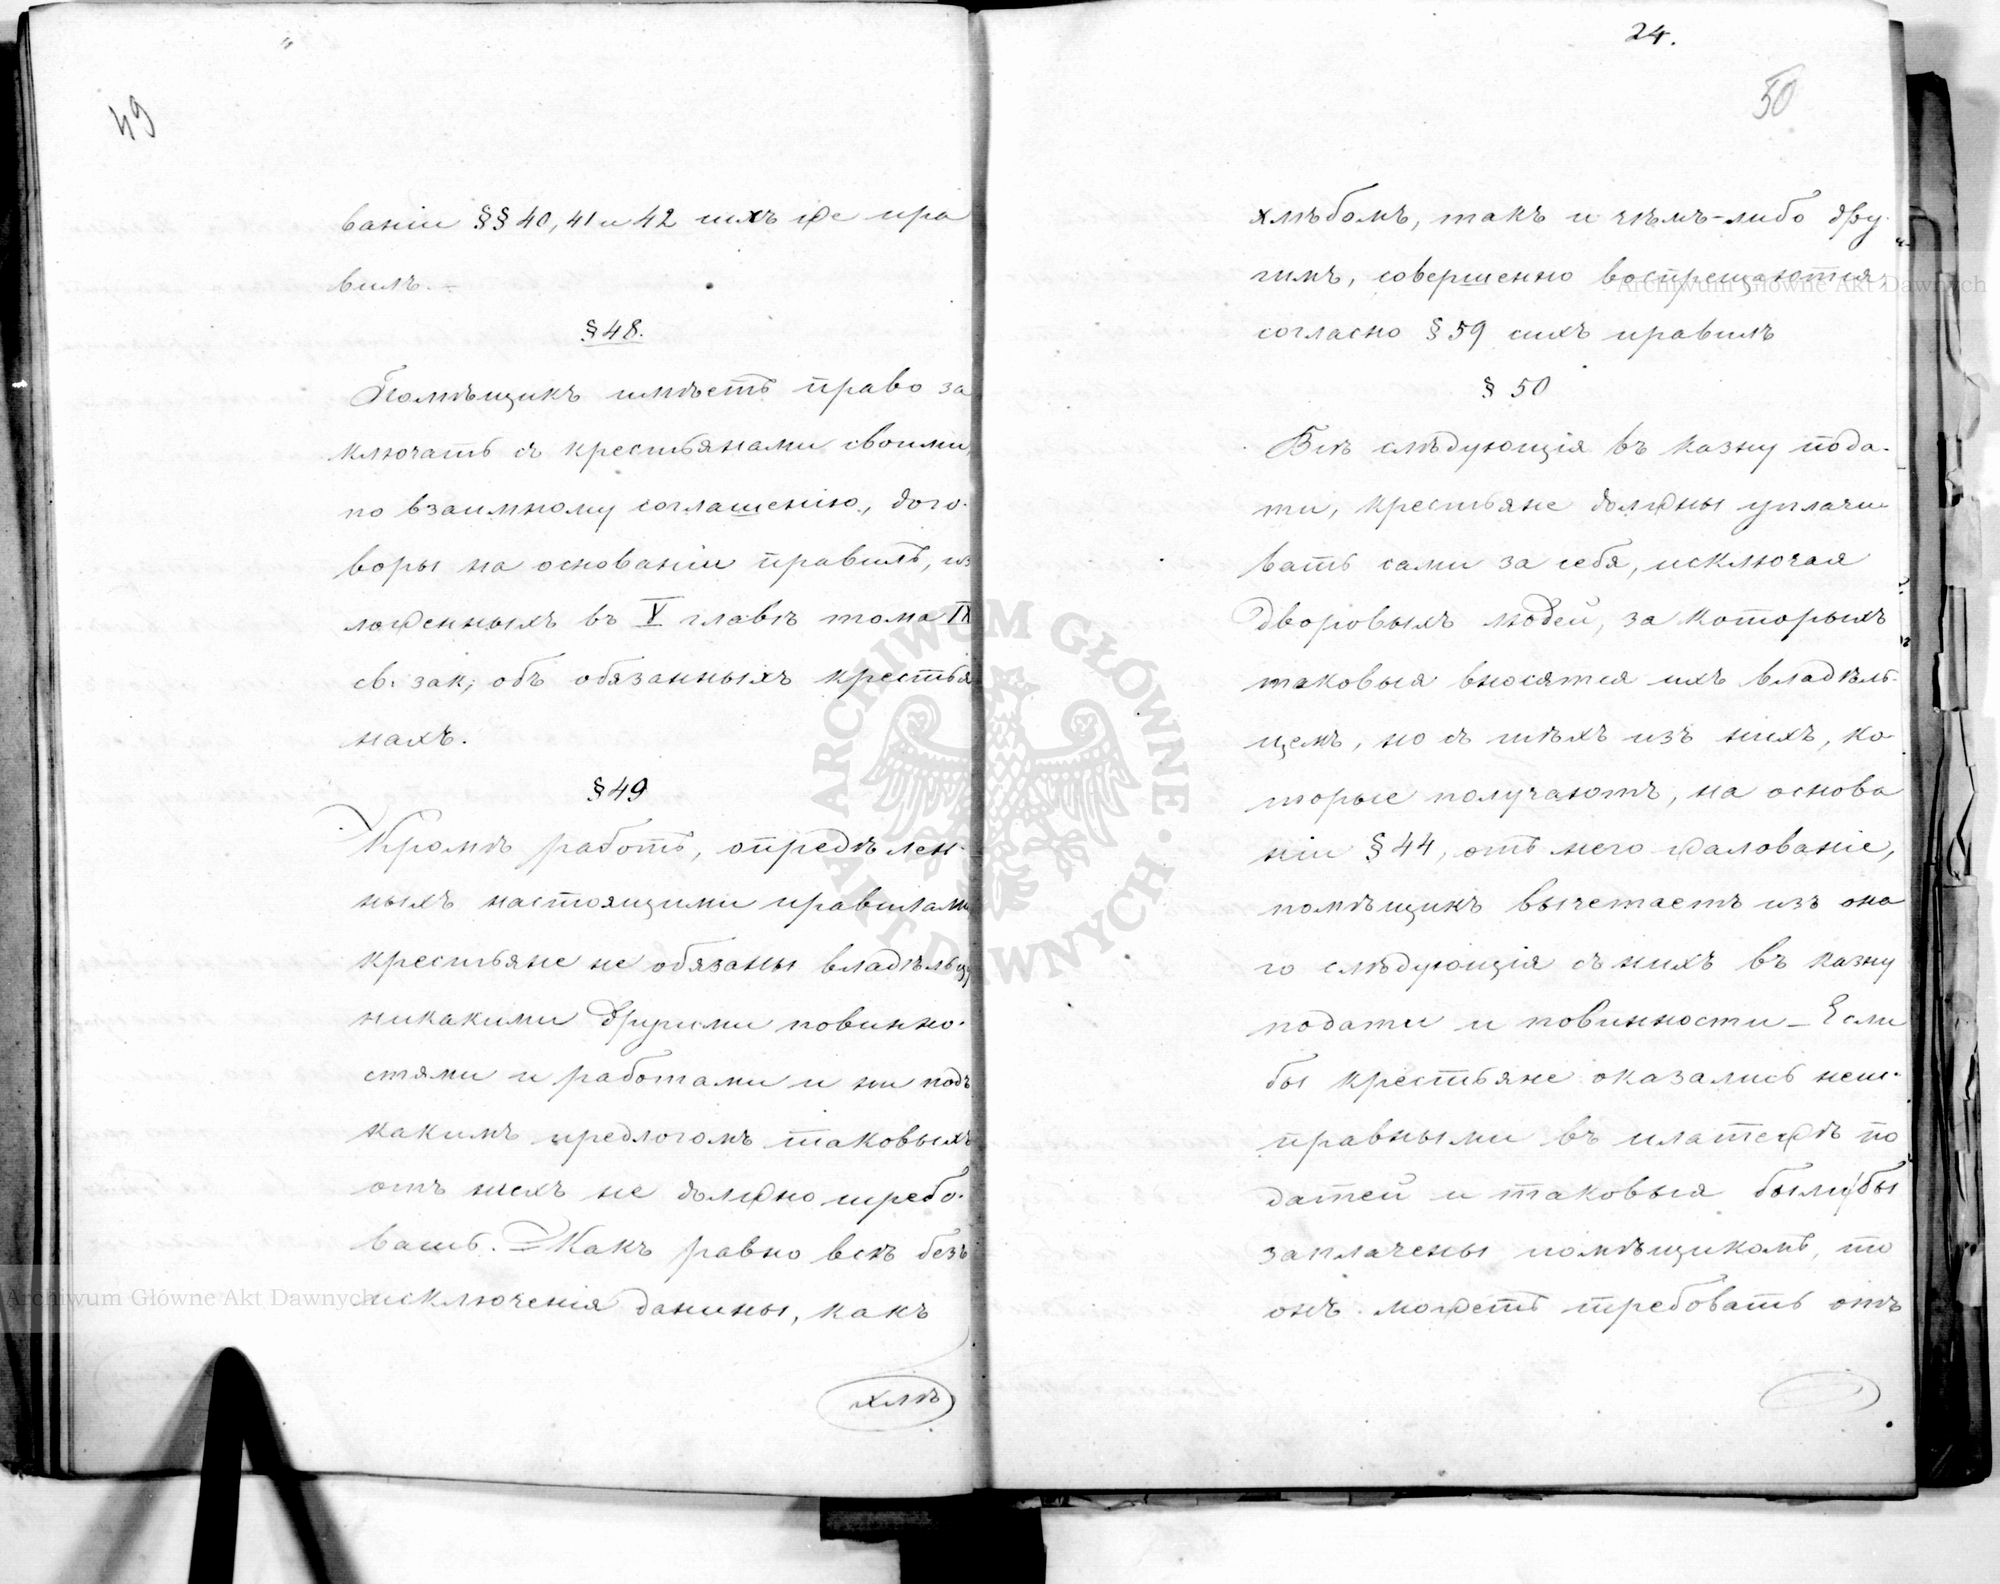 49
ваніи §§ 40, 41 и 42 сихъ же пра
вилъ.
§ 48.
Помѣщикъ имѣетъ право за
ключать съ крестьянами своими,
по взаимному соглашенію, дого-
воры на основаніи правилъ, из
ложенныхъ въ V главѣ тома IX
св. зак. объ обязанныхъ крестья
нахъ.
§ 49
Кромѣ работъ, опредѣлен-
ныхъ настоящими правилами
крестьяне не обязаны владѣльцу
никакими другими повинно-
стями и работами и ни подъ
какимъ предлогомъ таковыхъ
отъ нихъ не должно требо-
вать. Какъ равно всѣ безъ
исключенія данины, какъ
хлѣ
24.
50
хлѣбомъ, такъ и чѣмъ-либо дру-
гимъ, совершенно воспрещаются,
согласно § 59 сихъ правилъ
§ 50
Всѣ слѣдующія въ казну пода-
ти, крестьяне должны уплачи
вать сами за себя, исключая
дворовыхъ людей, за которыхъ
таковыя вносятся ихъ владѣль-
цемъ, но съ тѣхъ изъ нихъ, ко
торые получаютъ, на основа
ніи § 44, отъ него жалованіе,
помѣщикъ вычетаетъ изъ она
го слѣдующія съ нихъ въ казну
подати и повинности – Если
бы крестьяне оказались неис-
правными въ платежѣ по
датей и таковыя были бы
заплачены помѣщикомъ, то
онъ можетъ требовать отъ
ARCHIWUM GŁÓWNE AKT DAWNYCH
Archiwum Główne Akt Dawnych
Archiwum Główne Akt Dawnych